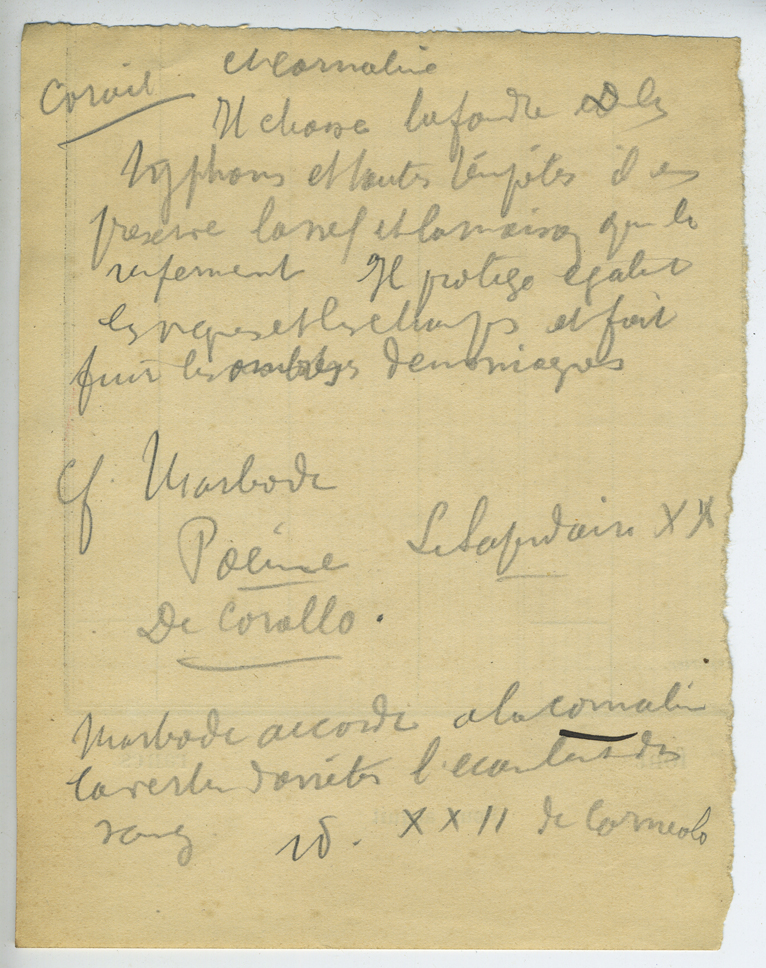 Corail et cornaline
Il chasse la foudre & les
typhons et toutes tempêtes il en
preserve la nef et la maison qui le
renferment Il protege egalet
les vignes et les champs et fait
fuir les ombres demoniaques
cf. Marbode
Poëme Le Lapidaire XX
De Corallo.
Marbode accorde a la cornaline
la vertu d'arrêter l'ecoulemt du
sang id. XXII de Corneolo